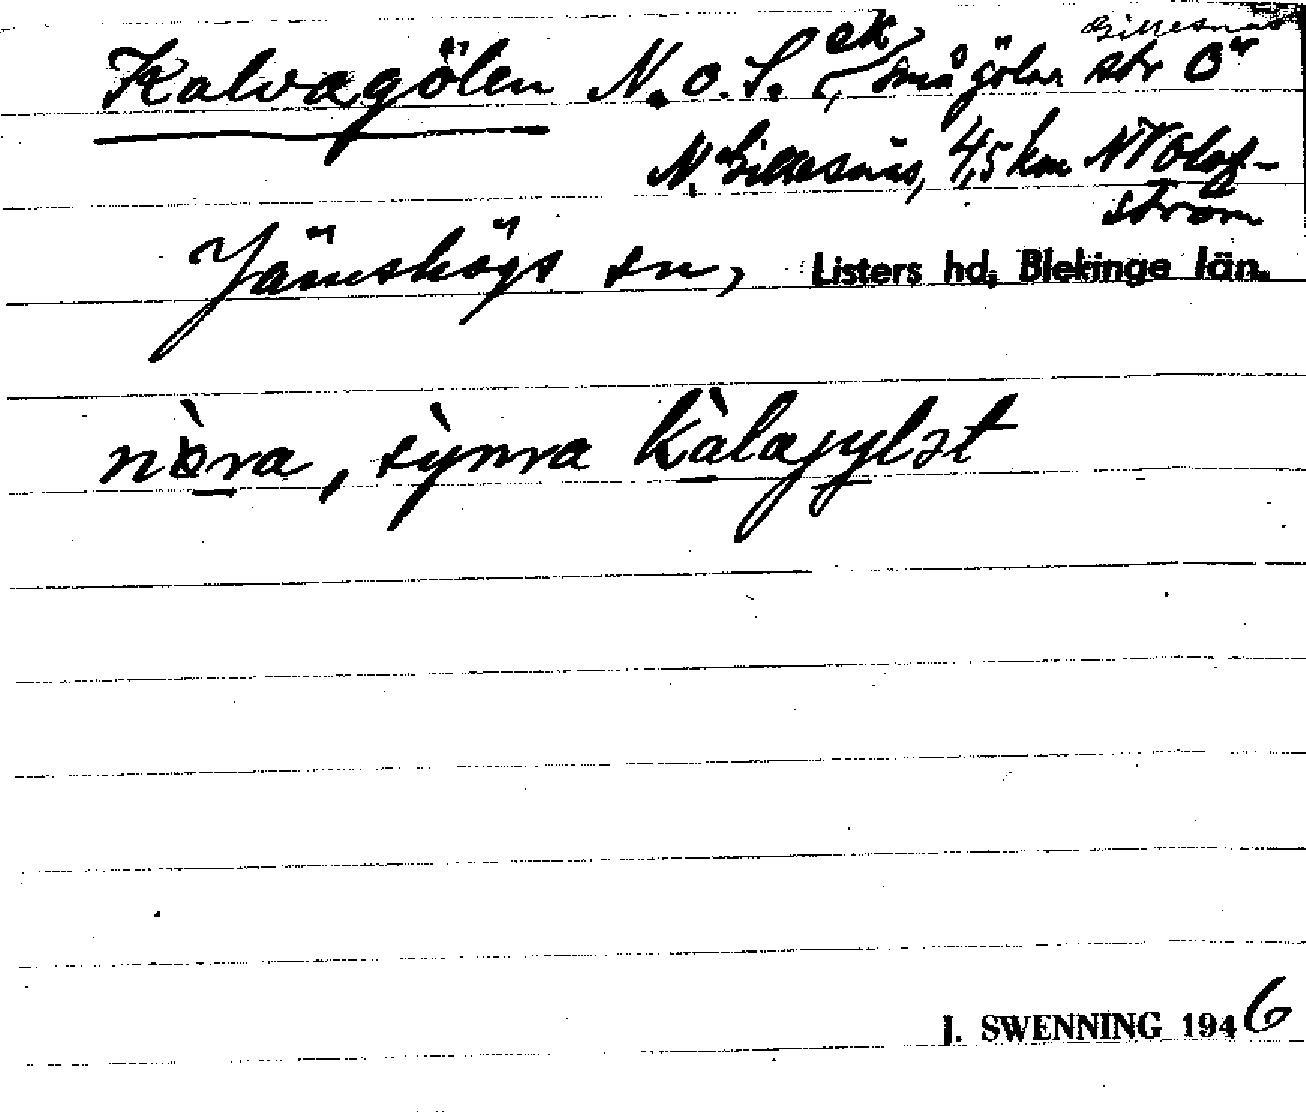 Gillesnäs
Kalvagölen N. o. S. ek, små gölar str Ö
N. Gillesnäs, 4,5 km NV Olof-
ström
Jämshögs sn, Listers hd, Blekinge län.
nò̱ra, sỳnra kà̱lagylət
J. SWENNING 1946